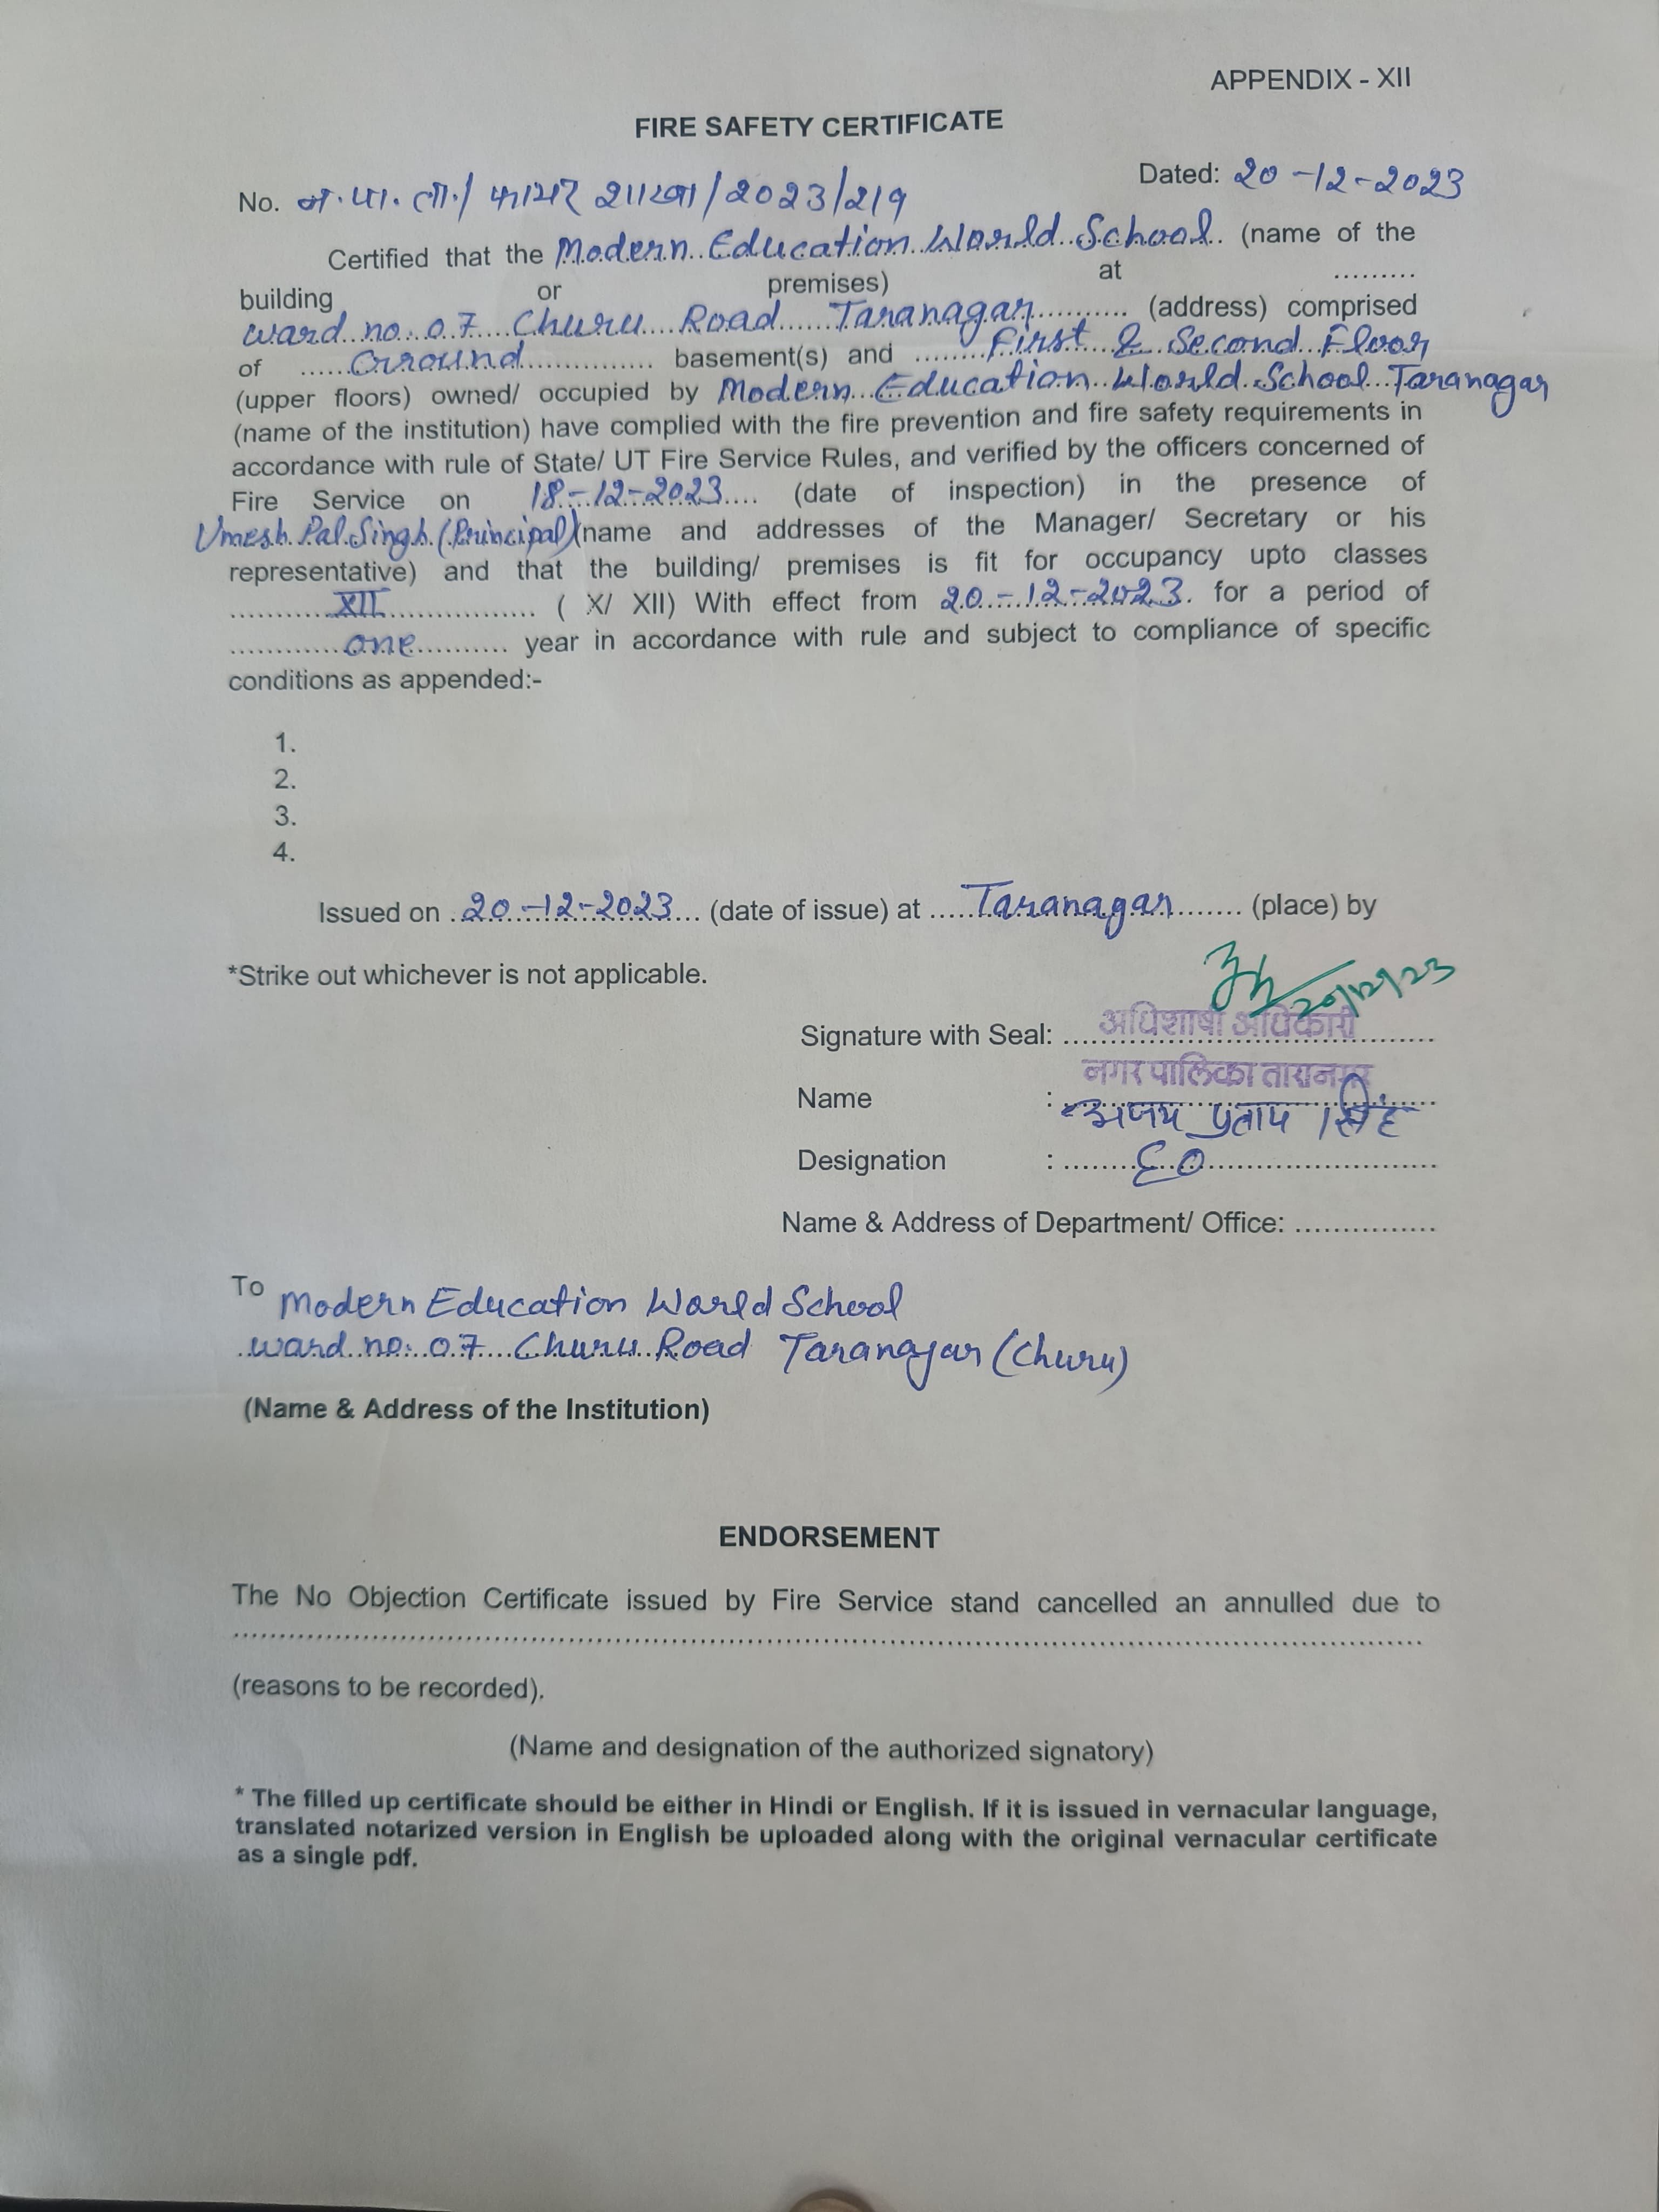 APPENDIX - XII
FIRE SAFETY CERTIFICATE
Dated: 20-12-2023
No. न.पा.ता./ फायर शाखा/2023/219
Certified that the Modern Education World School (name of the
building or premises) at .........
ward no. 07 Churu Road Taranagar (address) comprised
of Ground basement(s) and First & Second Floor
(upper floors) owned/ occupied by Modern Education World School Taranagar
(name of the institution) have complied with the fire prevention and fire safety requirements in
accordance with rule of State/ UT Fire Service Rules, and verified by the officers concerned of
Fire Service on 18-12-2023 (date of inspection) in the presence of
Umesh Pal Singh (Principal) (name and addresses of the Manager/ Secretary or his
representative) and that the building/ premises is fit for occupancy upto classes
XII ( X/ XII) With effect from 20-12-2023. for a period of
one year in accordance with rule and subject to compliance of specific
conditions as appended:-
1.
2.
3.
4.
Issued on 20-12-2023 (date of issue) at Taranagar (place) by
*Strike out whichever is not applicable.
20/12/23
Signature with Seal: अधिशाषी अधिकारी
नगर पालिका तारानगर
Name : अजय प्रताप सिंह
Designation : EO
Name & Address of Department/ Office: ...............
To Modern Education World School
ward no. 07 Churu Road Taranagar (Churu)
(Name & Address of the Institution)
ENDORSEMENT
The No Objection Certificate issued by Fire Service stand cancelled an annulled due to
(reasons to be recorded).
(Name and designation of the authorized signatory)
* The filled up certificate should be either in Hindi or English. If it is issued in vernacular language,
translated notarized version in English be uploaded along with the original vernacular certificate
as a single pdf.